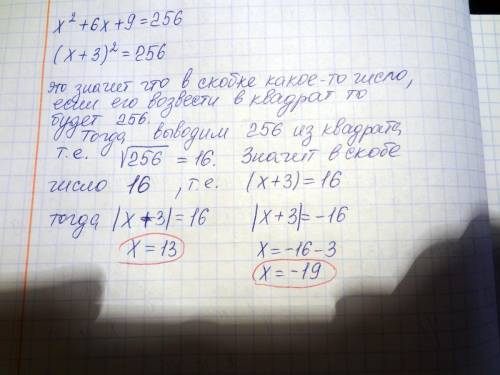 x² + 6x + 9 = 256
(x+3)² = 256
это значит что в скобке какое-то число,
если его возвести в квадрат то
будет 256.
Тогда выводим 256 из квадрата,
т.е. √256 = 16. Значит в скобе
число 16, т.е. (x+3) = 16
тогда |x+3| = 16 |x+3| = -16
x = 13 x = -16 - 3
x = -19